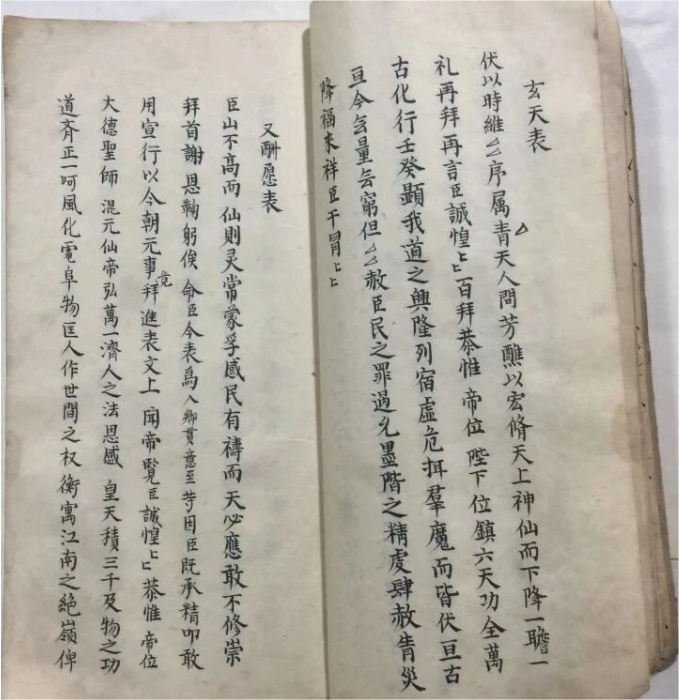 玄天表
伏以時維厶序属青天人間芳醮以宏脩天上神仙而下降一瞻一
礼再拜再言臣誠惶〻百拜恭惟 帝位 陛下位鎮六天功全萬
古化行壬癸顯我道之興隆列宿虛危摄羣魔而皆伏亘古
亘今无量无窮但厶赦臣民之罪過允墨階之精虔肆赦眚災
降福来祥臣干冐〻〻
又酧愿表
臣山不高而仙則灵常蒙孚感民有禱而天必應敢不修崇
拜首謝恩鞠躬俟 命臣今表為入卿貫意至等因臣既承精叩敢
用宣行以今朝元事竟拜進表文上 聞帝覽臣誠惶〻恭惟 帝位
大德聖師 混元仙帝弘萬一濟人之法恩感 皇天積三千及物之功
道齊正一呵風化電阜物匡人作世間之权衡寓江南之絶嶺俾